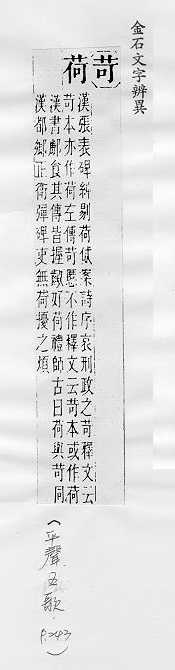 金石文字辨異
苛 荷
漢張表碑糾剔荷伩案詩序哀刑政之苛釋文云
苛本亦作荷左傳苛慝不作釋文云苛本或作荷
漢書酈食其傳皆握齱好荷禮師古曰荷與苛同
漢都鄉正衛彈碑吏無荷擾之煩
(平聲五歌 P.243)